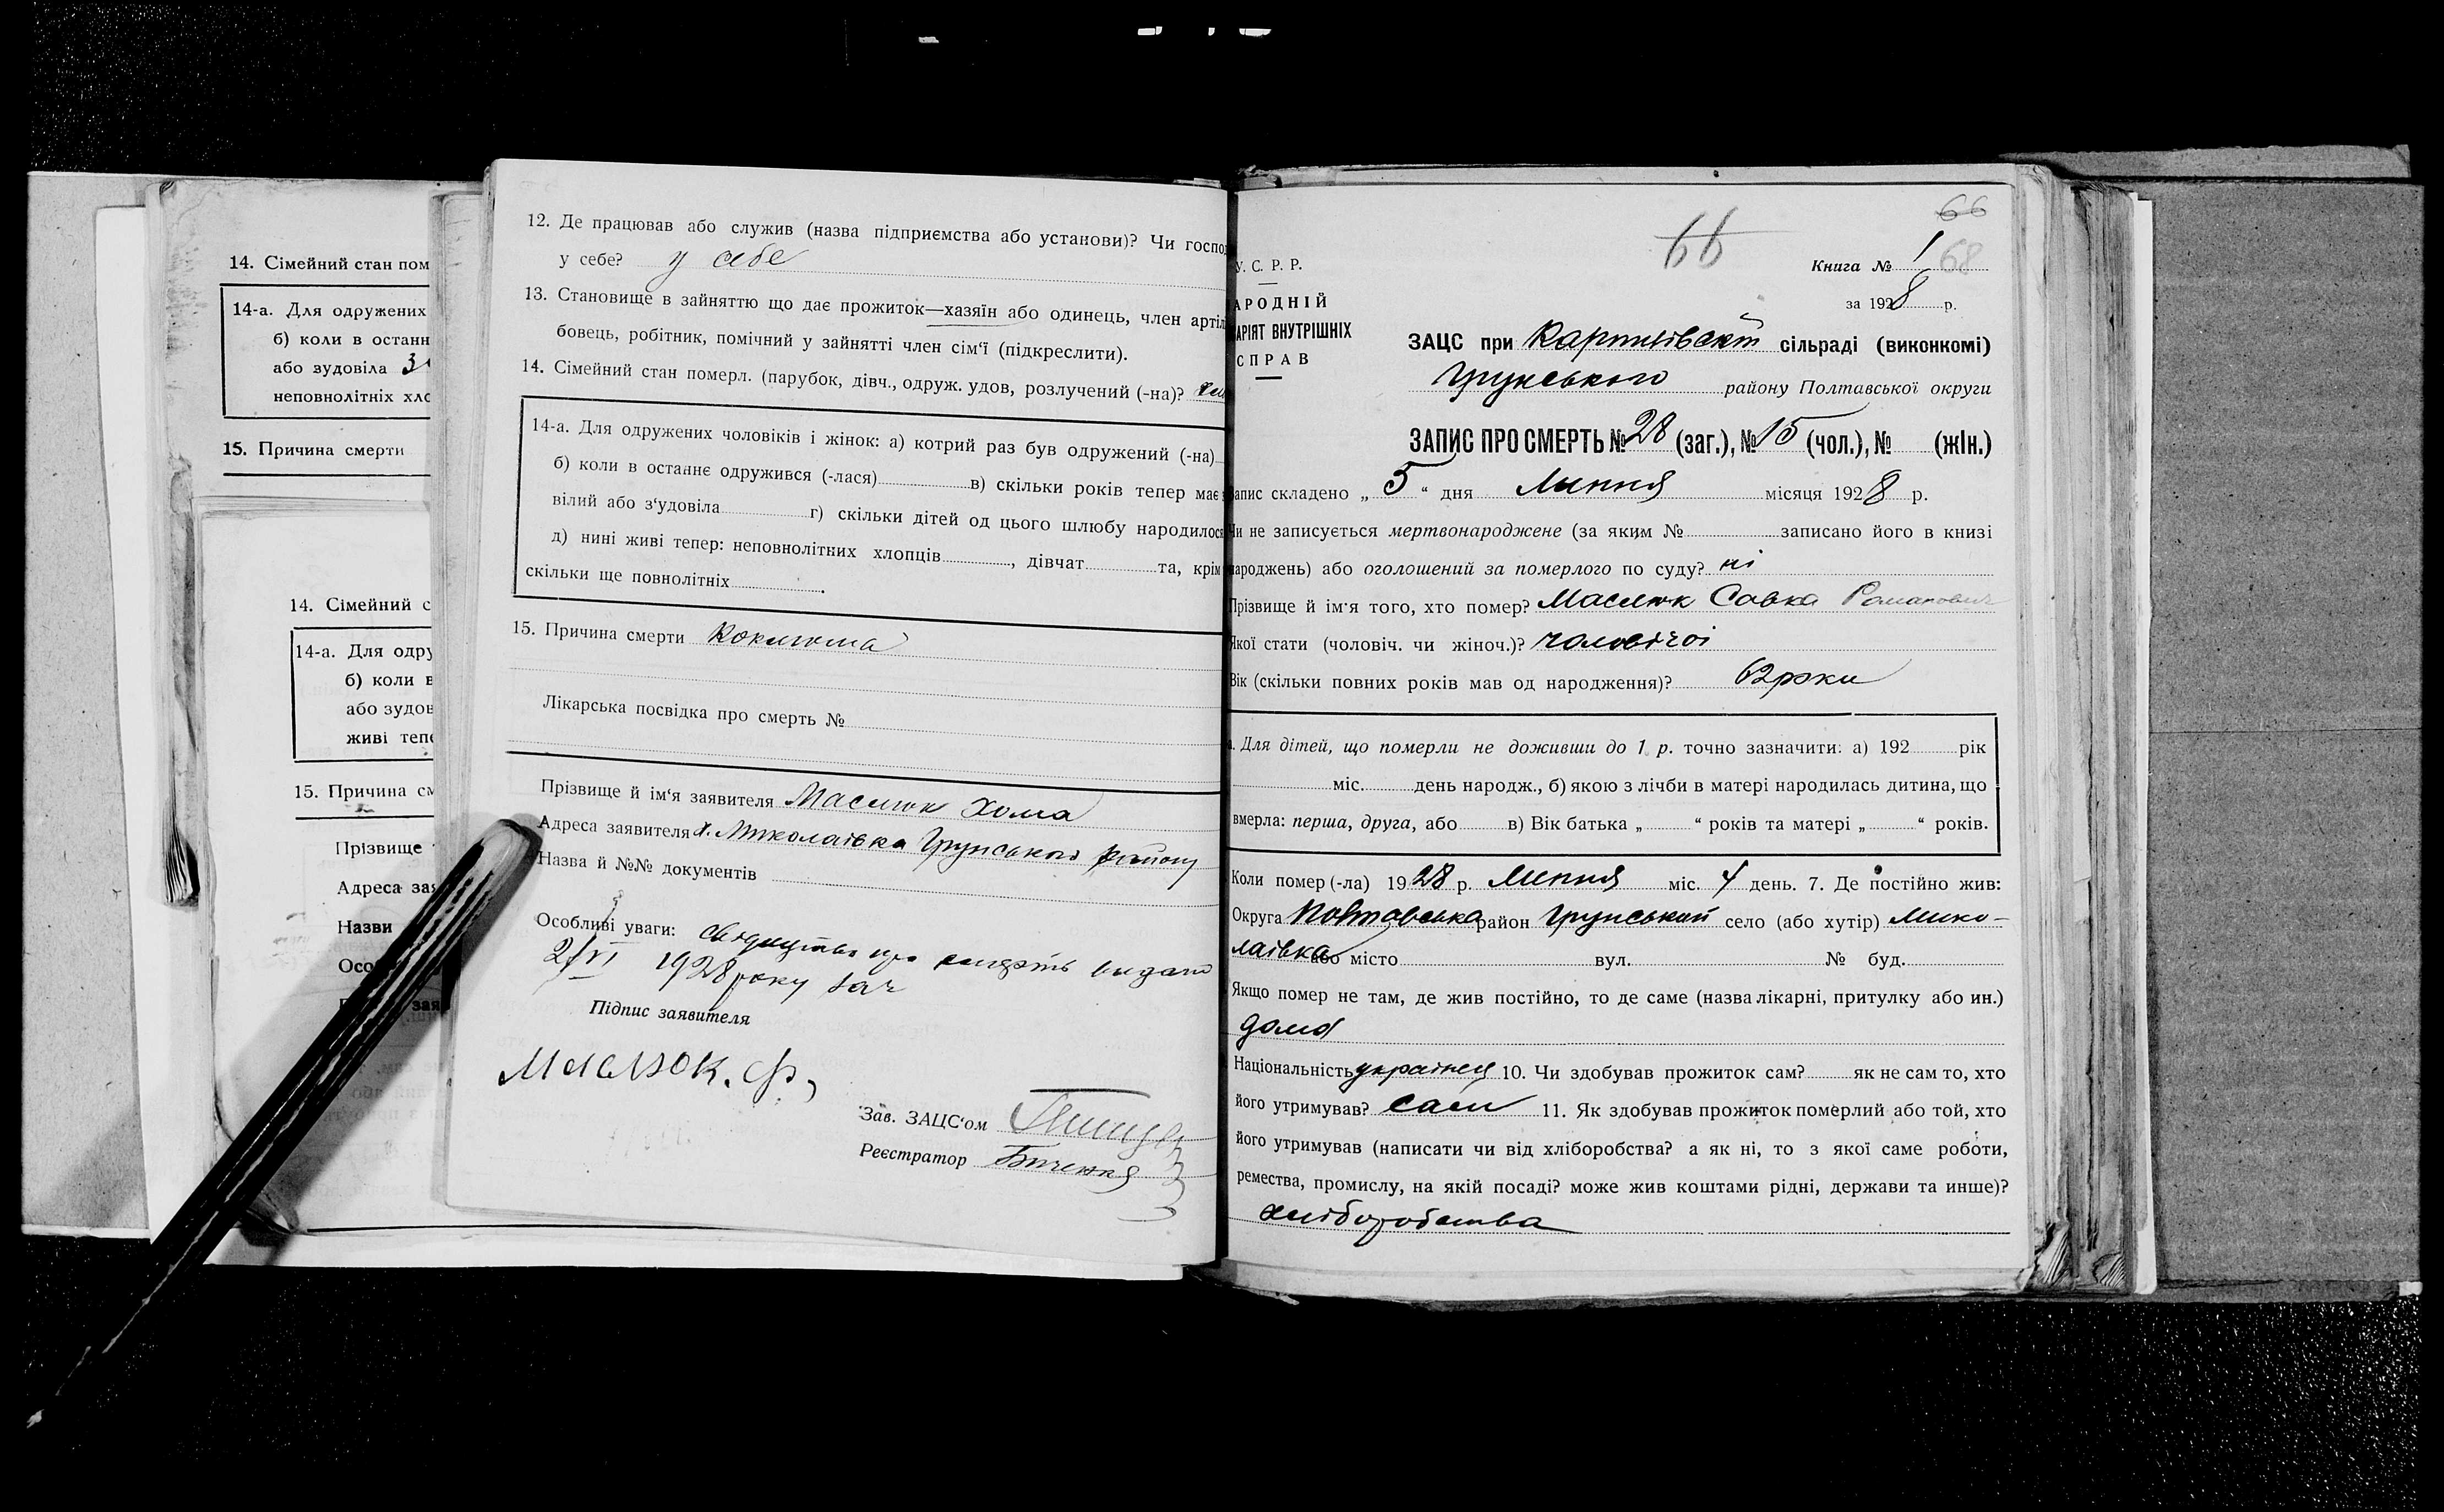 14. Сімейний стан пом
14-а. Для одружених
б) коли в останн
або зудовіла
неповнолітніх хло
15. Причина смерти
14. Сімейний с
14-а. Для одру
б) коли в
або зудов
живі тепе
15. Причина см
Прізвище
Адреса зая
Назви
Осо
зая
12. Де працював або служив (назва підприємства або установи)? Чи господ
у себе? у себе
13. Становище в зайняттю що дає прожиток—хазяїн або одинець, член артіл
бовець, робітник, помічний у зайнятті член сім'ї (підкреслити).
14. Сімейний стан померл. (парубок, дівч., одруж. удов, розлучений (-на)?
14-а. Для одружених чоловіків і жінок: а) котрий раз був одружений (-на)
б) коли в останнє одружився (-лася) в) скільки років тепер має
вілий або з'удовіла г) скільки дітей од цього шлюбу народилося
д) нині живі тепер: неповнолітних хлопців, дівчат та, крім
скільки ще повнолітніх.
15. Причина смерти Коклюша
Лікарська посвідка про смерть №
Прізвище й ім'я заявителя Маслюк Хома
Адреса заявителя х. Миколаївка Грунського району
Назва й №№ документів
Особливі уваги: свідицтво про смерть видано
2/VI 1928 року
Підпис заявителя
Маслюк. Ф,
Зав. ЗАЦС'ом
Реєстратор
66
66
У. С. Р. Р.
Книга № 1 68
за 1928 р.
АРОДНІЙ
АРІЯТ ВНУТРІШНІХ
СПРАВ
ЗАЦС при сільраді (виконкомі)
Грунського району Полтавської округи
ЗАПИС ПРО СМЕРТЬ № 28 (заг.), № 15 (чол.), № (жін.)
апис складено „ 5 “ дня Липня місяця 1928 р.
Чи не записується мертвонароджене (за яким № записано його в книзі
народжень) або оголошений за померлого по суду? ні
Прізвище й ім'я того, хто помер? Маслюк Савка Романович
Якої стати (чоловіч. чи жіноч.)? чоловічої
Вік (скільки повних років мав од народження)? 62 роки
а. Для дітей, що померли не доживши до 1 р. точно зазначити: а) 192 рік
міс. день народж., б) якою з лічби в матері народилась дитина, що
вмерла: перша, друга, або в) Вік батька „ “ років та матері „ “ років.
Коли помер (-ла) 1928 р. Липня міс. 4 день. 7. Де постійно жив:
Округа Полтавська район Грунський село (або хутір) Мико-
лаївка або місто вул. № буд.
Якщо помер не там, де жив постійно, то де саме (назва лікарні, притулку або ин.)
дома
Національність українец 10. Чи здобував прожиток сам? як не сам то, хто
його утримував? сам 11. Як здобував прожиток померлий або той, хто
його утримував (написати чи від хліборобства? а як ні, то з якої саме роботи,
ремества, промислу, на якій посаді? може жив коштами рідні, держави та инше)?
хліборобства